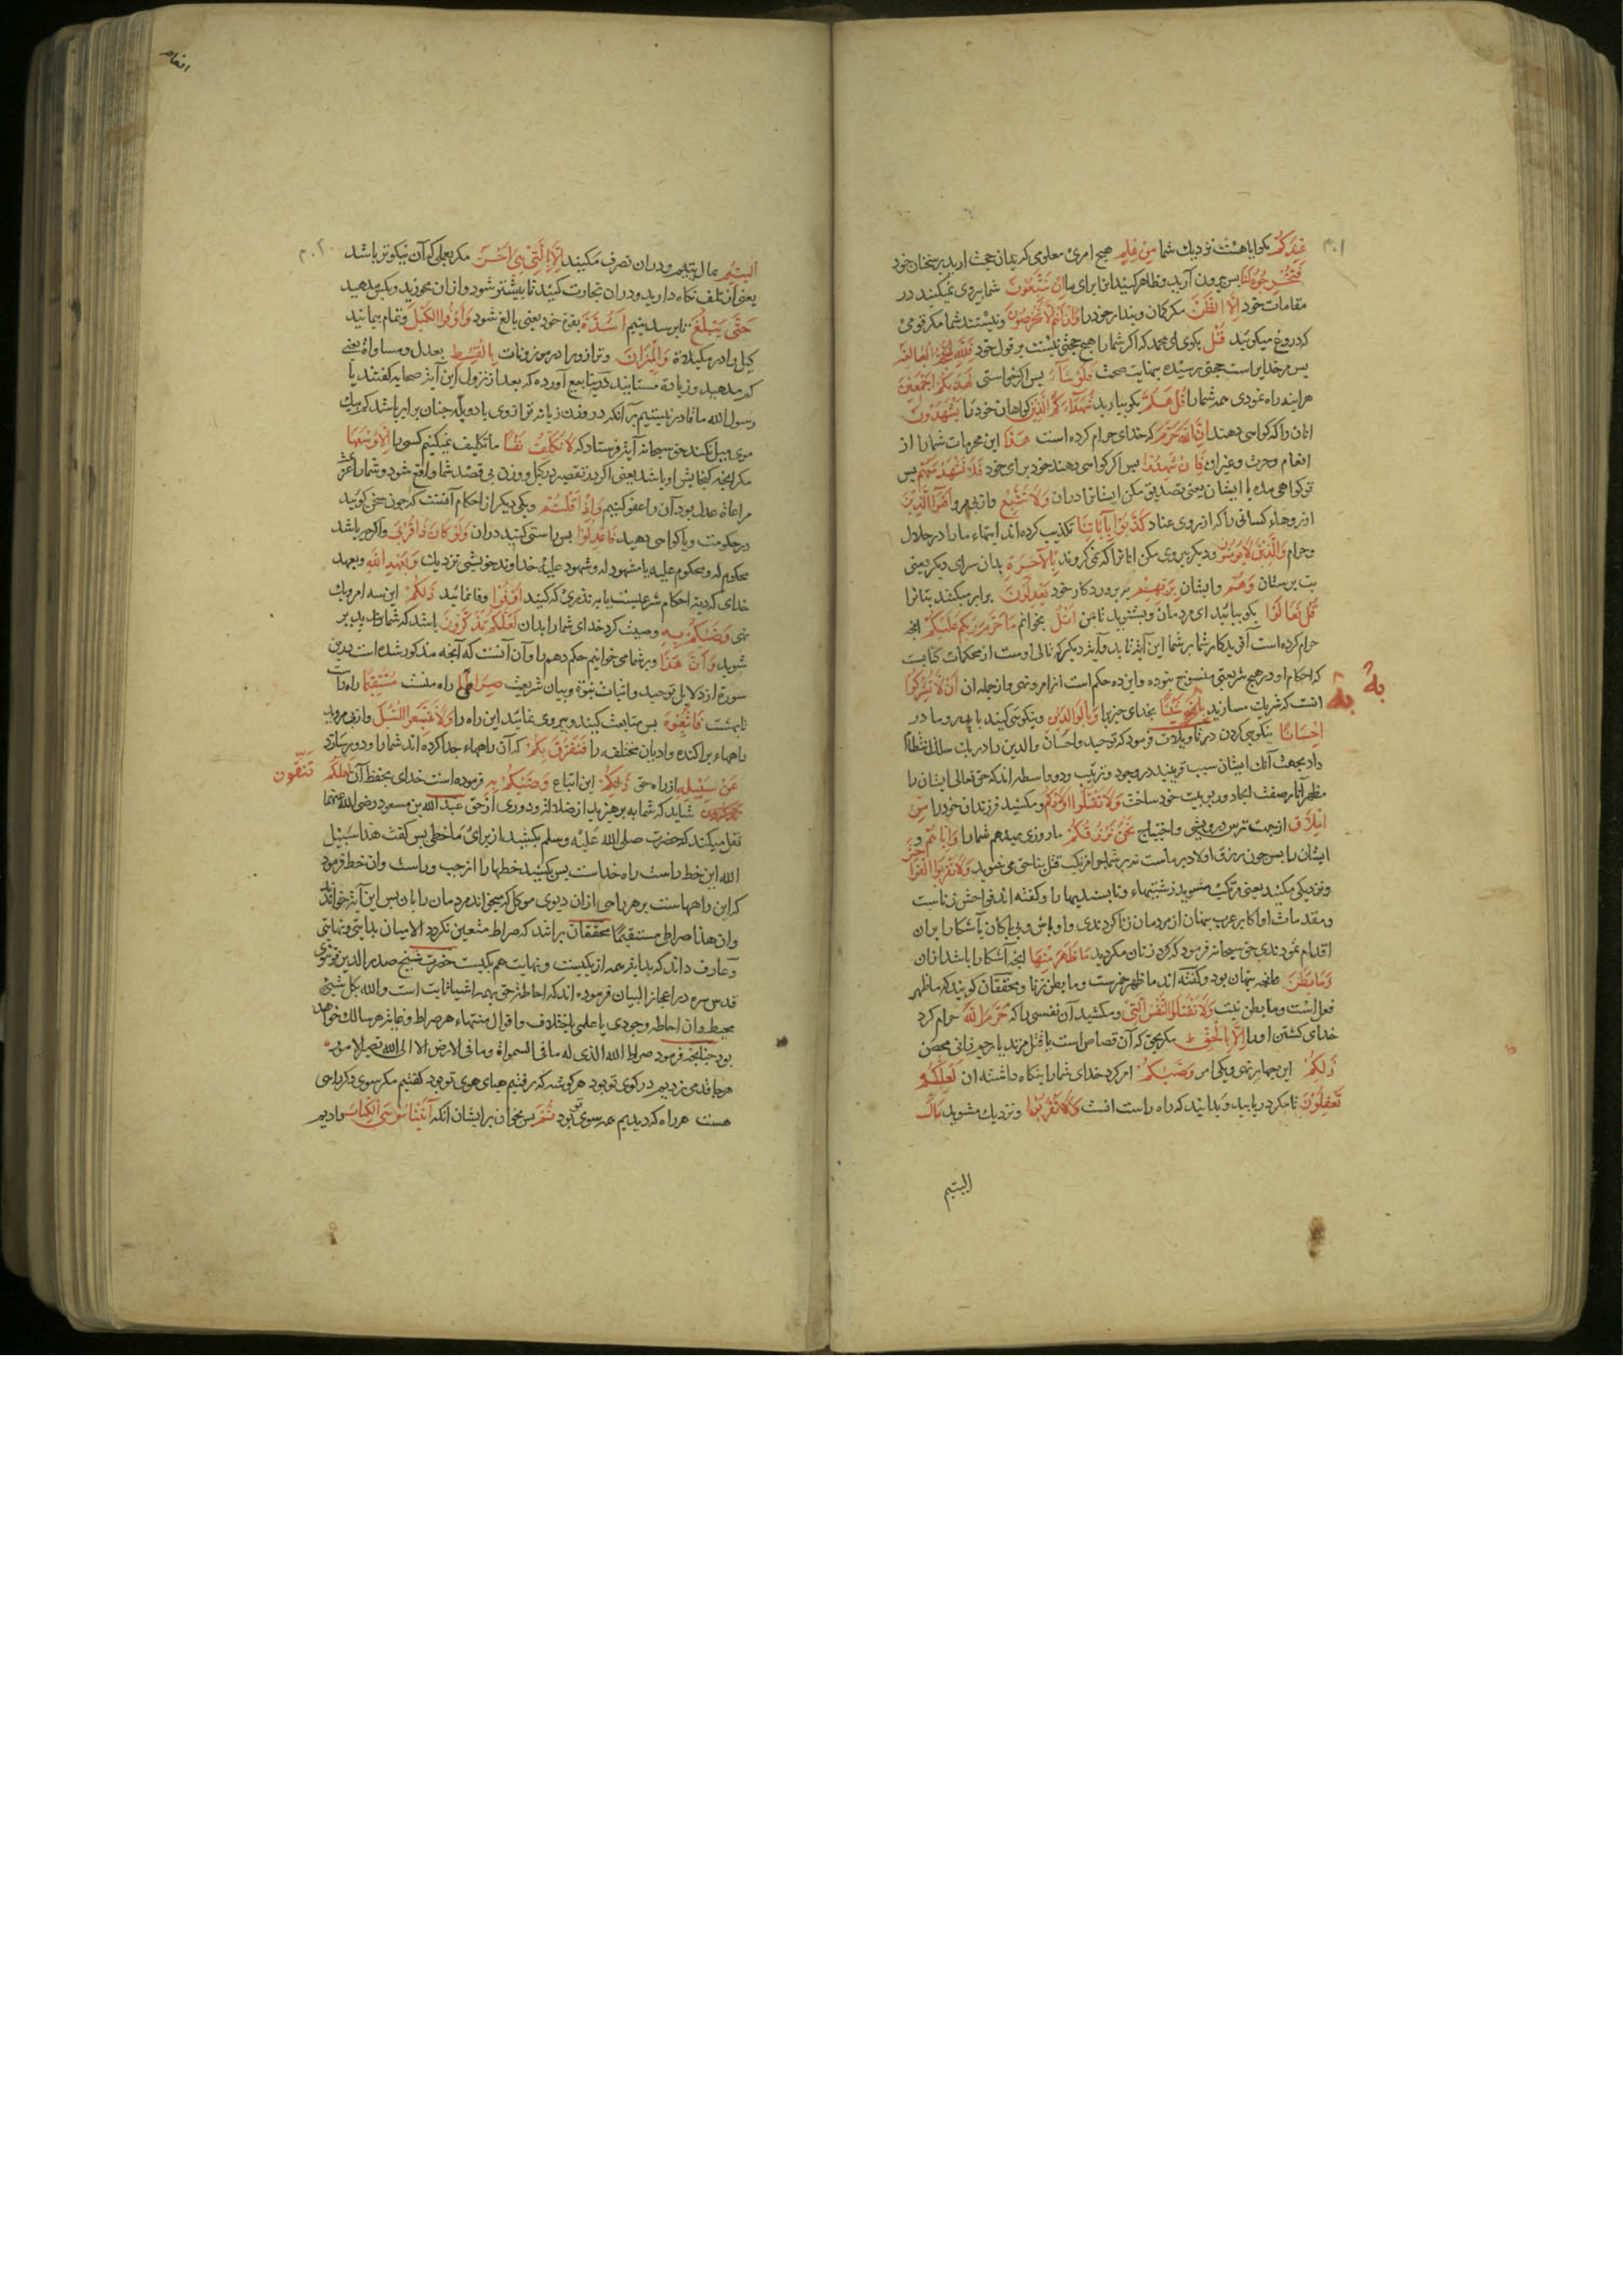 ۳۰۱
عِنْدَکُمْ بکو ایا هست نزدیك شما مِنْ عِلْمٍ هیچ امری معلومی که بدان حجت ارید بر سخنان خود
فَتُخْرِجُوهُ لَنَا پس بیرون آرید و ظاهر کنید انرا برای ما اِنْ تَتَّبِعُونَ شما پیروی نمیکنید در
مقامات خود اِلَّا الظَّنَّ مکر کمان و پندار خود را وَاِنْ اَنْتُمْ اِلَّا تَخْرُصُونَ و نیستند شما مکر قومی
که دروغ میکوئید قُلْ بکوی ای محمد که اکر شما را هیچ حجتی نیست بر قول خود فَلِلّٰهِ الْحُجَّةُ الْبَالِغَةُ
پس مر خدایراست حجتی رسیده بنهایت صحت فَلَوْ شَآءَ پس اکر خواستی لَهَدٰیکُمْ اَجْمَعِینَ
هراینه راه نمودی همه شما را قُلْ هَلُمَّ بکو بیارید شُهَدَآءَکُمُ الَّذِینَ کواهان خود را یَشْهَدُونَ
انان را که کواهی دهند اَنَّ اللّٰهَ حَرَّمَ که خدای حرام کرده است هٰذَا این محرمات شما را از
انعام وحرث و غیر ان فَاِنْ شَهِدُوا پس اکر کواهی دهند خود برای خود فَلَا تَشْهَدْ مَعَهُمْ پس
تو کواهی مده با ایشان یعنی تصدیق مکن ایشانرا دران وَلَا تَتَّبِعْ واز پی مرو اَهْوَآءَ الَّذِینَ
ارزوهاء کسانی را که از روی عناد کَذَّبُوا بِاٰیَاتِنَا تکذیب کرده اند ایتهاء ما را در حلال
وحرام وَالَّذِینَ لَا یُؤْمِنُونَ و دیکر پیروی مکن انانرا که نمی کروند بِالْاٰخِرَةِ بدان سرای دیکر یعنی
بت پرستان وَهُمْ وایشان بِرَبِّهِمْ به پروردکار خود یَعْدِلُونَ برابر میکنند بتانرا
قُلْ تَعَالَوْا بکو بیائید ای مردمان و بشنوید تا من اَتْلُ بخوانم مَا حَرَّمَ رَبُّکُمْ عَلَیْکُمْ انچه
حرام کرده است آفریدکار شما بر شما این آیة تا بد و آیة دیکر که تالی اوست از محکمات کتابست
که احکام او در هیچ شریعتی منسوخ نبوده و این ده حکم است از امر و نهی و از جمله ان اَنْ لَا تُشْرِکُوا
انست که شریك مسازید بِهٖ شَیْئًا بخدای چیزیرا وَبِالْوَالِدَیْنِ و نیکوئی کنید با پدر و مادر
بِهٖ بِهٖ
اِحْسَانًا نیکویی کردن در تاویلات فرمود که توحید واحسان والدین را در یك سلك انتظام
داد بجهت آنك ایشان سبب قریبند در وجود و تربیت و دو واسطه اند که حق تعالی ایشان را
مظهر آثار صفت ایجاد و ربوبیت خود ساخت وَلَا تَقْتُلُوا اَوْلَادَکُمْ و مکشید فرزندان خود را مِنْ
اِمْلَاقٍ از جهت ترس درویشی و احتیاج نَحْنُ نَرْزُقُکُمْ ما روزی میدهم شما را وَاِیَّاهُمْ و
ایشان را پس چون رزق اولاد بر ماست نه بر شما چرا مرتکب قتل بناحق می شوید وَلَا تَقْرَبُوا الْفَوَاحِشَ
ونزدیکی مکنید یعنی مرتکب مشوید زشتیهاء و ناپسندیها را و کفته اند فواحش زناست
و مقدمات او اکابر عرب پنهان از مردمان زنا کردندی و اوباش و بی باکان بآشکارا بران
اقدام نمودندی حق سبحانه فرمود که کرد زنان مکردید مَا ظَهَرَ مِنْهَا انچه آشکارا باشد ازان
وَمَا بَطَنَ و انچه پنهان بود و کفته اند ما ظهر خمرست وما بطن زنا و محققان کویند که ما ظهر
فعل است وما بطن نیت وَلَا تَقْتُلُوا النَّفْسَ الَّتِی و مکشید آن نفسی را که حَرَّمَ اللّٰهُ حرام کرد
خدای کشتن او را اِلَّا بِالْحَقِّ مکر بحق که آن قصاص است یا قتل مرتد یا رجم زانی محصن
ذٰلِکُمْ این چهار نهی و یکی امر وَصّٰیکُمْ امر کرد خدای شما را بنکاه داشته ان لَعَلَّکُمْ
تَعْقِلُونَ تا مکر دریابید و بدانید که راه راست انست وَلَا تَقْرَبُوا ونزدیك مشوید مَالَ
الیتیم
انعام
۳۰۲
الْیَتِیمِ بمال یتیم ودران تصرف مکنید اِلَّا بِالَّتِی هِیَ اَحْسَنُ مکر بعملی که آن نیکوتر باشد
یعنی از تلف نکاه دارید ودران تجارت کنید تا بیشتر شود وازان مخورید وبکس مدهید
حَتّٰی یَبْلُغَ تا برسد یتیم اَشُدَّهُ بقوة خود یعنی بالغ شود وَاَوْفُوا الْکَیْلَ و تمام پیمانید
کیل را در مکیلات وَالْمِیزَانَ و ترازو را در موزونات بِالْقِسْطِ بعدل ومساواة یعنی
کم مدهید وزیادة مستانید در ینابیع آورده که بعد از نزول این آیة صحابه کفتند یا
رسول الله ما قادر نیستیم بر آنکه در وزن زبانه ترازوی یا دو پله چنان برابر باشد که بیك
موی میل نکند حق سبحانه آیة فرستاد که لَا نُکَلِّفُ نَفْسًا ما تکلیف نمیکنیم کسی را اِلَّا وُسْعَهَا
مکر انچه کنجایش او باشد یعنی اکر بر تقصیر در کیل و وزن بی قصد شما واقع شود وشما را غرض
مراعاة عدل بود آن را عفو کنیم وَاِذَا قُلْتُمْ و یکی دیکر از احکام آنست که چون سخن کویید
در حکومت ویا کواهی دهید فَاعْدِلُوا پس راستی کنید دران وَلَوْ کَانَ ذَا قُرْبٰی واکرچه باشد
محکوم له و محکوم علیه یا مشهود له و مشهود علیه خداوند خویشی نزدیك وَبِعَهْدِ اللّٰهِ وبعهد
خدای که دیة احکام شرعیست یا بر نذری که کنید اَوْفُوا وفا نمائید ذٰلِکُمْ این سه امر ویك
نهی وَصّٰیکُمْ بِهٖ وصیت کرد خدای شما را بدان لَعَلَّکُمْ تَذَکَّرُونَ باشد که شما پند پذیر
شوید وَاَنَّ هٰذَا و بر شما می خوانیم حکم دهم را و آن آنست که آنچه مذکور شده است درین
سورة از دلایل توحید و اثبات نبوة وبیان شریعت صِرَاطِی راه منست مُسْتَقِیمًا راه راست
تا بهشت فَاتَّبِعُوهُ پس متابعت کنید و پیروی نمائید این راه را وَلَا تَتَّبِعُوا السُّبُلَ و از پی مروید
راههاء پراکنده وادیان مختلفه را فَتَفَرَّقَ بِکُمْ که آن راههاء جدا کرده اند شما را و دور سازد
عَنْ سَبِیلِهٖ از راه حق ذٰلِکُمْ این اتباع وَصّٰیکُمْ بِهٖ فرموده است خدای بحفظ آن لَعَلَّکُمْ تَتَّقُونَ
تذکرون شاید که شما بپرهیزید از ضلالة ودوری از حق عبد الله بن مسعود رضی الله عنهما
نقل میکند که حضرت صلی الله علیه وسلم بکشید از برای ما خطی پس کفت هذا سبیل
الله این خط راست راه خداست پس بکشید خطها را از چپ و راست وان خط فرمود
که این راههاست بر هر راهی ازان دیوی موکل که میخواند مردمان را بان پس این آیة خواند
وان هذا صراطی مستقیما محققان برانند که صراط متعین نکردد الا میان بدایتی و نهایتی
و عارف داند که بدایة همه از یکیست و نهایت هم یکیست حضرت شیخ صدر الدین قونوی
قدس سره در اعجاز البیان فرموده اند که احاطة حق بهمه اشیا ثابت است والله بکل شیئ
محیط وان احاطه وجودی یا علمی باختلاف واقوال منتهاء هر صراط و غایة هر سالك خواهد
بود چنانچه فرمود صراط الله الذی له ما فی السموات وما فی الارض الا الی الله تصیر الامور
هر جا قدمی زدیم در کوی تو بود هر کوشه که رفتیم هیای هوی تو بود کفتیم مکر سوی دکر راهی
هست هر راه که دیدیم همه سوی تو بود ثُمَّ پس بخوان بر ایشان انکه اٰتَیْنَا مُوسَی الْکِتَابَ دادیم